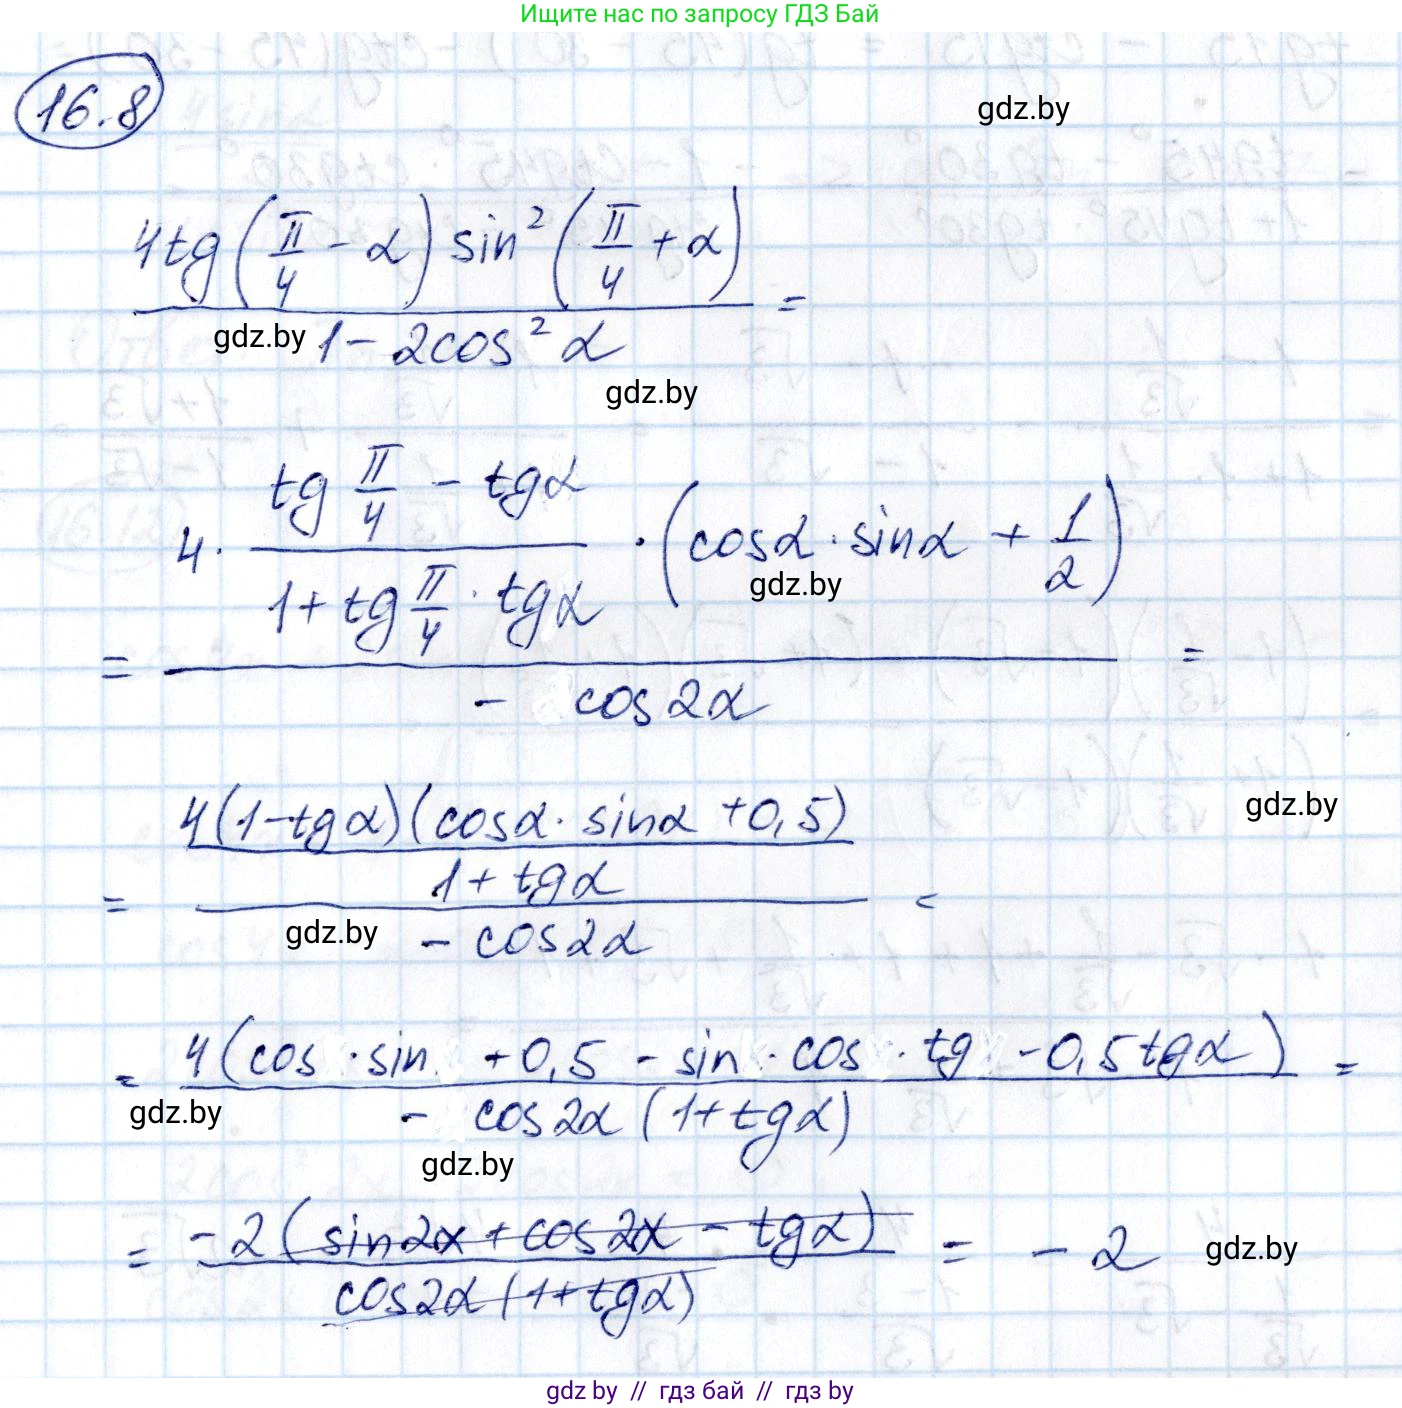 Ищите нас по запросу ГДЗ Бай
16.8
gdz.by
4tg(π/4 - α) sin²(π/4 + α) / 1 - 2cos²α =
gdz.by
gdz.by
= 4 · (tg π/4 - tgα) / (1 + tg π/4 · tgα) · (cosα · sinα + 1/2) / - cos2α =
gdz.by
gdz.by
= 4(1-tgα)(cosα · sinα + 0,5) / 1 + tgα / - cos2α =
gdz.by
= 4(cos · sin + 0,5 - sin · cos · tg - 0,5tgα) / - cos2α (1+tgα) =
gdz.by
gdz.by
= -2(sin2x + cos2x - tgα) / cos2α (1+tgα) = -2
gdz.by
gdz by // гдз бай // гдз by